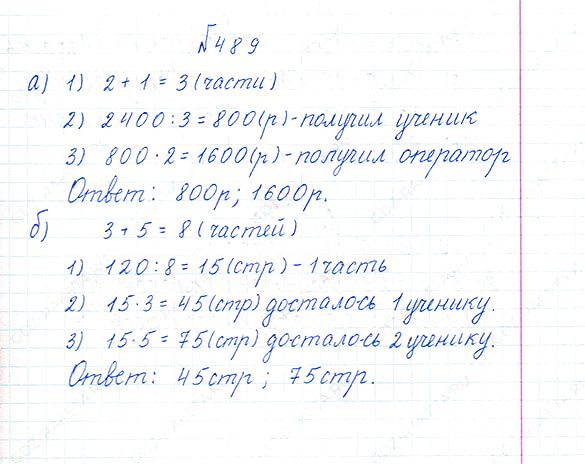 №489
а) 1) 2+1=3(части)
2) 2400:3=800(р)-получил ученик
3) 800·2=1600(р)-получил оператор
Ответ: 800р; 1600р.
б) 3+5=8(частей)
1) 120:8=15(стр)-1часть
2) 15·3=45(стр) досталось 1 ученику.
3) 15·5=75(стр) досталось 2 ученику.
Ответ: 45стр; 75стр.